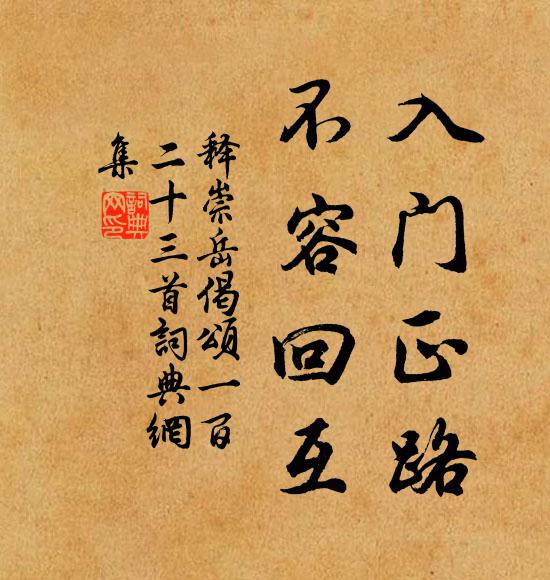 入门正路
不容回互
释崇岳偈颂一百
二十三首詞典網
集
詞典
网印